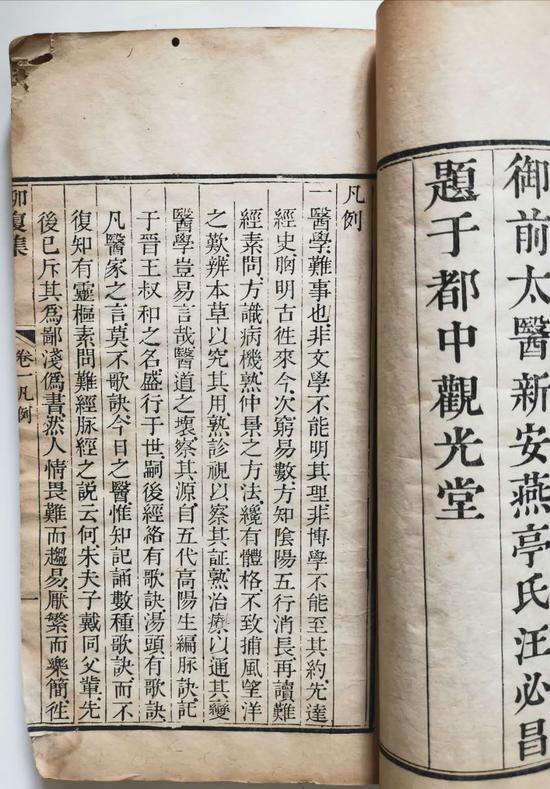 御前太醫新安燕亭氏汪必昌
題于都中觀光堂
凡例
一醫學難事也非文學不能明其理非博學不能至其約先達
經史胸明古徃來今次窮易數方知陰陽五行消長再讀難
經素問方識病機熟仲景之方法纔有體格不致捕風望洋
之歎辨本草以究其用熟診視以察其証熟治療以通其變
醫學豈易言哉醫道之壞察其源自五代高陽生編脉訣記
于晉王叔和之名盛行于世嗣後經絡有歌訣湯頭有歌訣
凡醫家之言莫不歌訣今日之醫惟知記誦數種歌訣而不
復知有靈樞素問難經脉經之説云何宋夫子戴同父輩先
後已斥其爲鄙淺僞書然人情畏難而趨易厭繁而樂簡徃
復集 卷一凡例 一